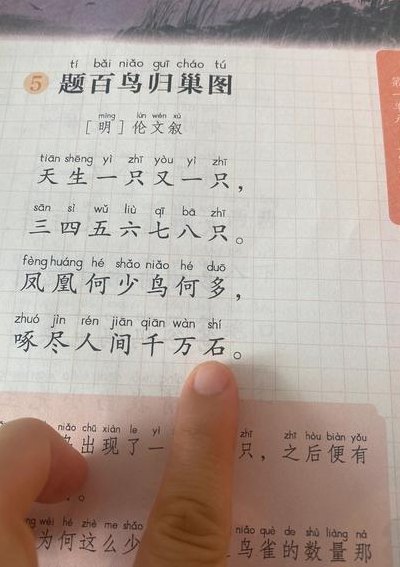 tí bǎi niǎo guī cháo tú
5 题百鸟归巢图
míng lún wén xù
[明] 伦文叙
tiān shēng yì zhī yòu yì zhī
天生一只又一只，
sān sì wǔ liù qī bā zhī
三四五六七八只。
fèng huáng hé shǎo niǎo hé duō
凤凰何少鸟何多，
zhuó jìn rén jiān qiān wàn shí
啄尽人间千万石。
niǎo chū xiàn le yì zhī zhī hòu biàn yǒu
出现了一 只，之后便有
wèi hé zhè me shǎo niǎo què de shù liàng nà
为何这么少 鸟雀的数量那
第一单元